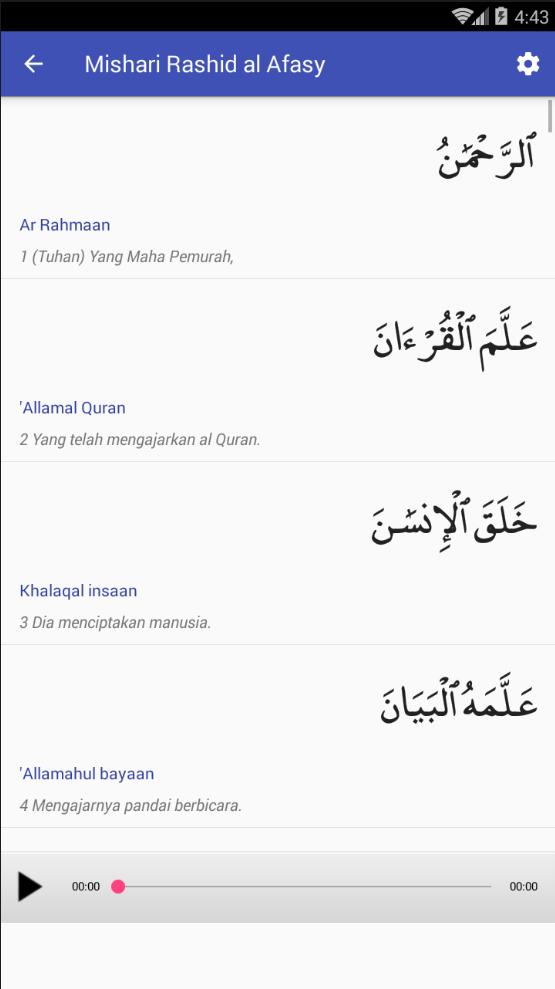 4:43
Mishari Rashid al Afasy
ٱلرَّحْمَٰنُ
Ar Rahmaan
1 (Tuhan) Yang Maha Pemurah,
عَلَّمَ ٱلْقُرْءَانَ
'Allamal Quran
2 Yang telah mengajarkan al Quran.
خَلَقَ ٱلْإِنسَٰنَ
Khalaqal insaan
3 Dia menciptakan manusia.
عَلَّمَهُ ٱلْبَيَانَ
'Allamahul bayaan
4 Mengajarnya pandai berbicara.
00:00 00:00